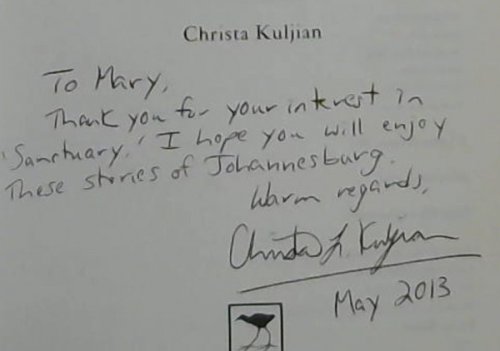 Christa Kuljian
To Mary,
Thank you for your interest in
'Sanctuary.' I hope you will enjoy
These stories of Johannesburg.
Warm regards,
Christa L. Kuljian
May 2013